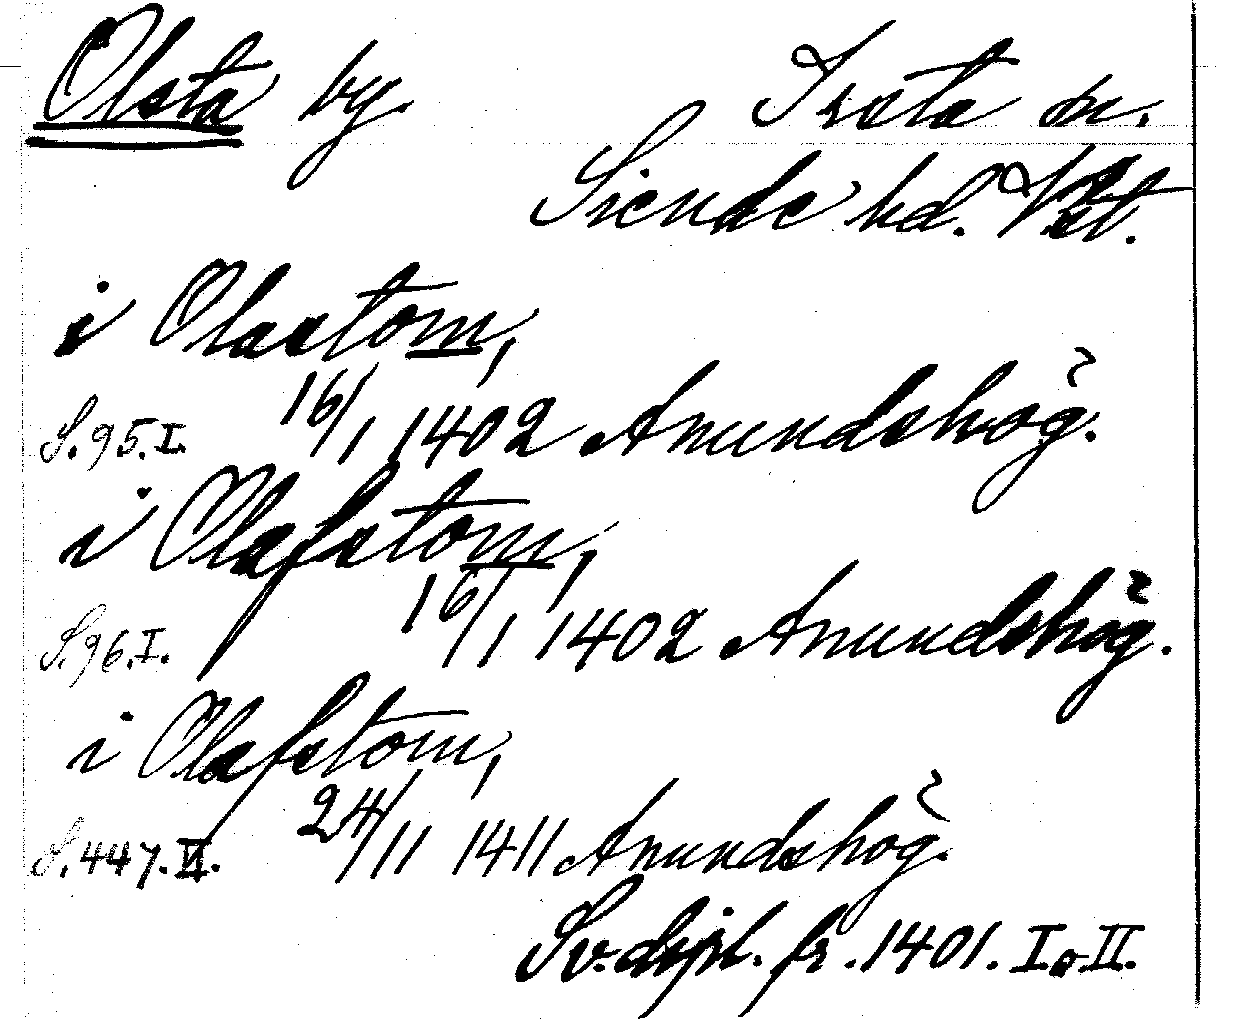 Olsta by Irsta sn.
Siende hd. Vstl.
i Olastom,
S. 95. I. 16/1 1402 Anundshög.
i Olafstom,
S. 96. I. 16/1 1402 Anundshög.
i Olafstom,
S. 447. II. 24/11 1411 Anundshög.
Sv. dipl. fr. 1401. I o. II.